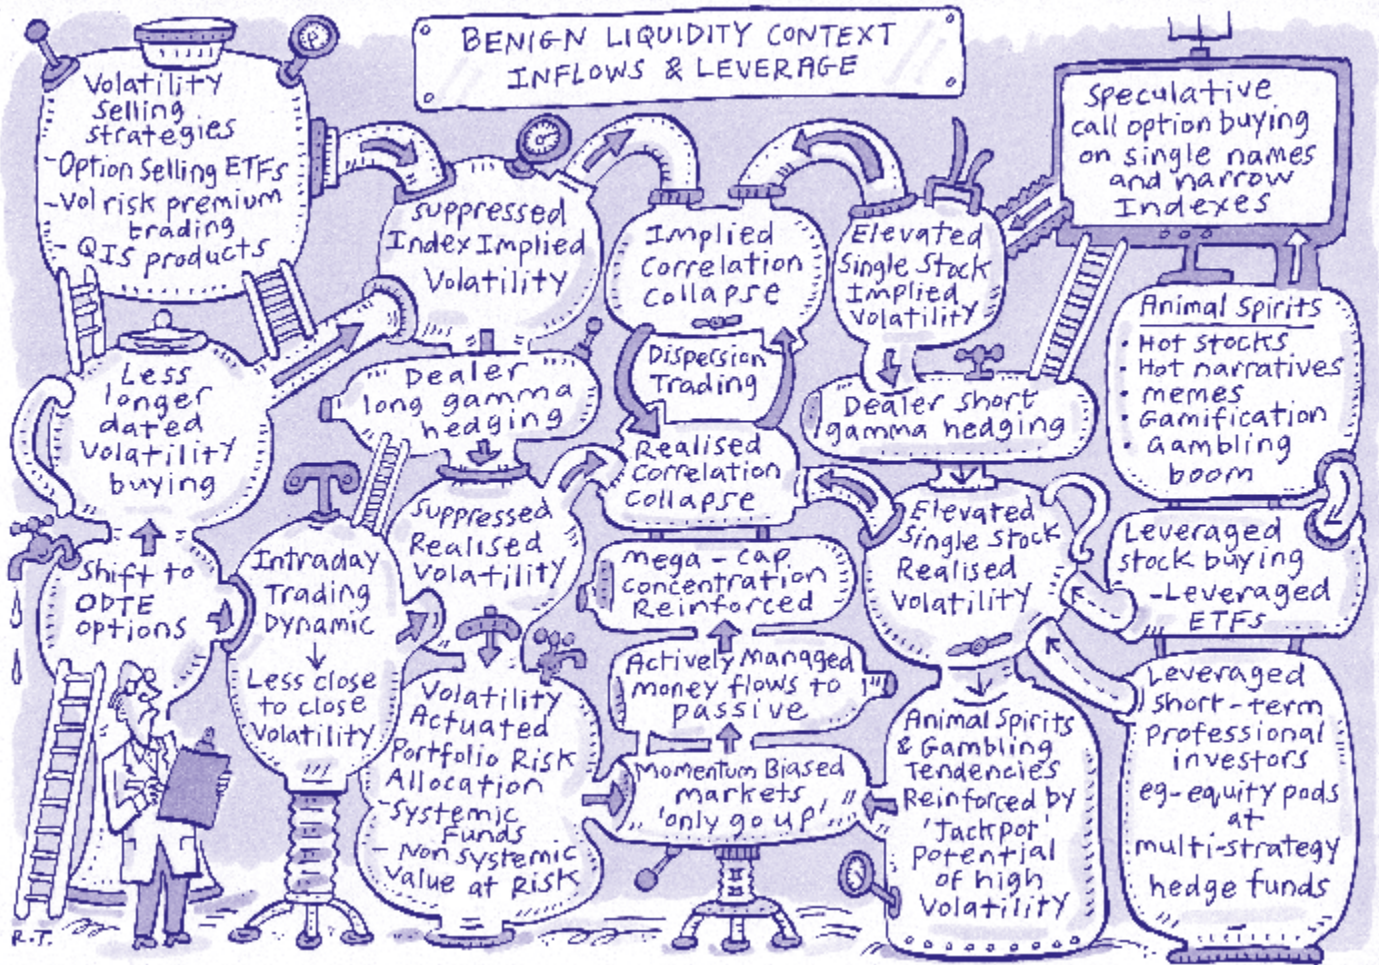 BENIGN LIQUIDITY CONTEXT
INFLOWS & LEVERAGE
Volatility
Selling
strategies
-Option Selling ETFs
-Vol risk premium
trading
- QIS products
Suppressed
Index Implied
Volatility
Implied
Correlation
Collapse
Elevated
Single Stock
Implied
Volatility
Speculative
call option buying
on single names
and narrow
Indexes
Less
longer
dated
Volatility
buying
Dealer
long gamma
hedging
Dispersion
Trading
Dealer short
gamma hedging
Animal Spirits
• Hot stocks
• Hot narratives
• memes
• Gamification
• Gambling
boom
Realised
Correlation
Collapse
Shift to
ODTE
options
Intraday
Trading
Dynamic
↓
Less close
to close
Volatility
Suppressed
Realised
Volatility
mega-cap
concentration
Reinforced
Elevated
Single Stock
Realised
Volatility
Leveraged
stock buying
-Leveraged
ETFs
Actively managed
money flows to
passive
Volatility
Actuated
Portfolio Risk
Allocation
-Systemic
Funds
- Non systemic
value at Risk
Momentum Biased
markets
'only go up'
Animal Spirits
& Gambling
Tendencies
Reinforced by
'Jackpot'
potential
of high
Volatility
Leveraged
short-term
professional
investors
eg-equity pods
at
multi-strategy
hedge funds
R.T.